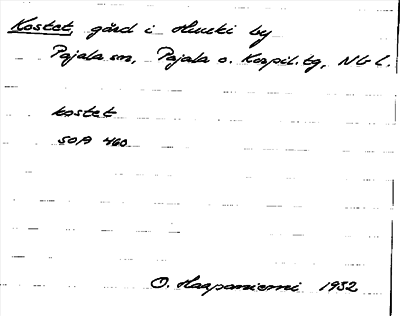 Kostet, gård i Huuki by
Pajala sn, Pajala o. Korpil. tg, NbL.
kostet
SOA 460
O. Haapaniemi 1932